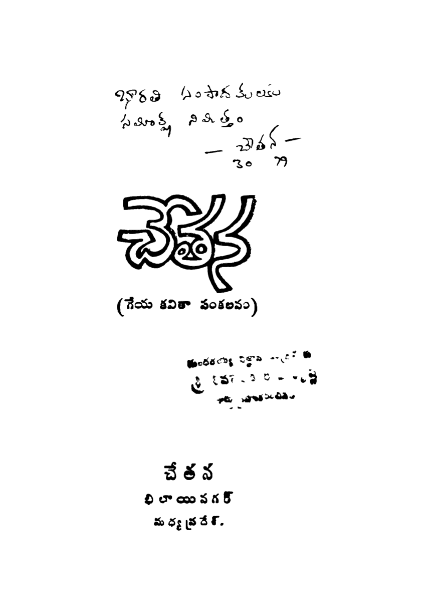 భారతి సంపాదకులకు
సమీక్ష నిమిత్తం
— చేతన —
చేతన
(గేయ కవితా సంకలనం)
చేతన
భిలాయినగర్
మధ్యప్రదేశ్.